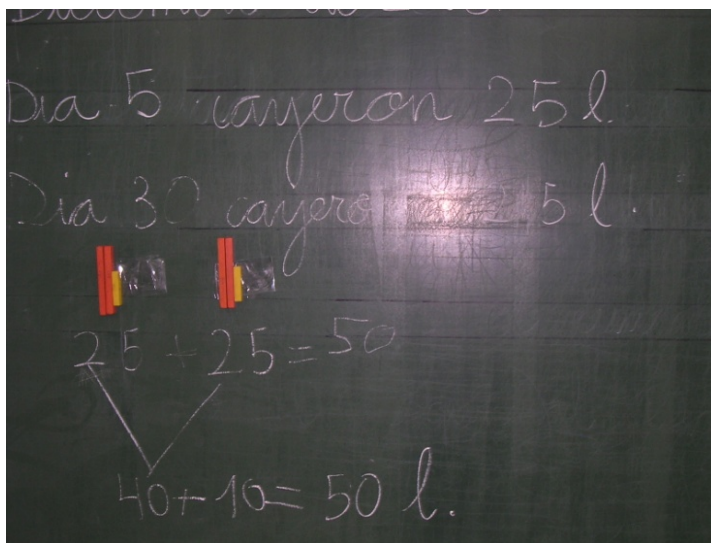 Dia 5 cayeron 25 l.
Dia 30 cayero 5 l.
25 + 25 = 50
40 + 10 = 50 l.